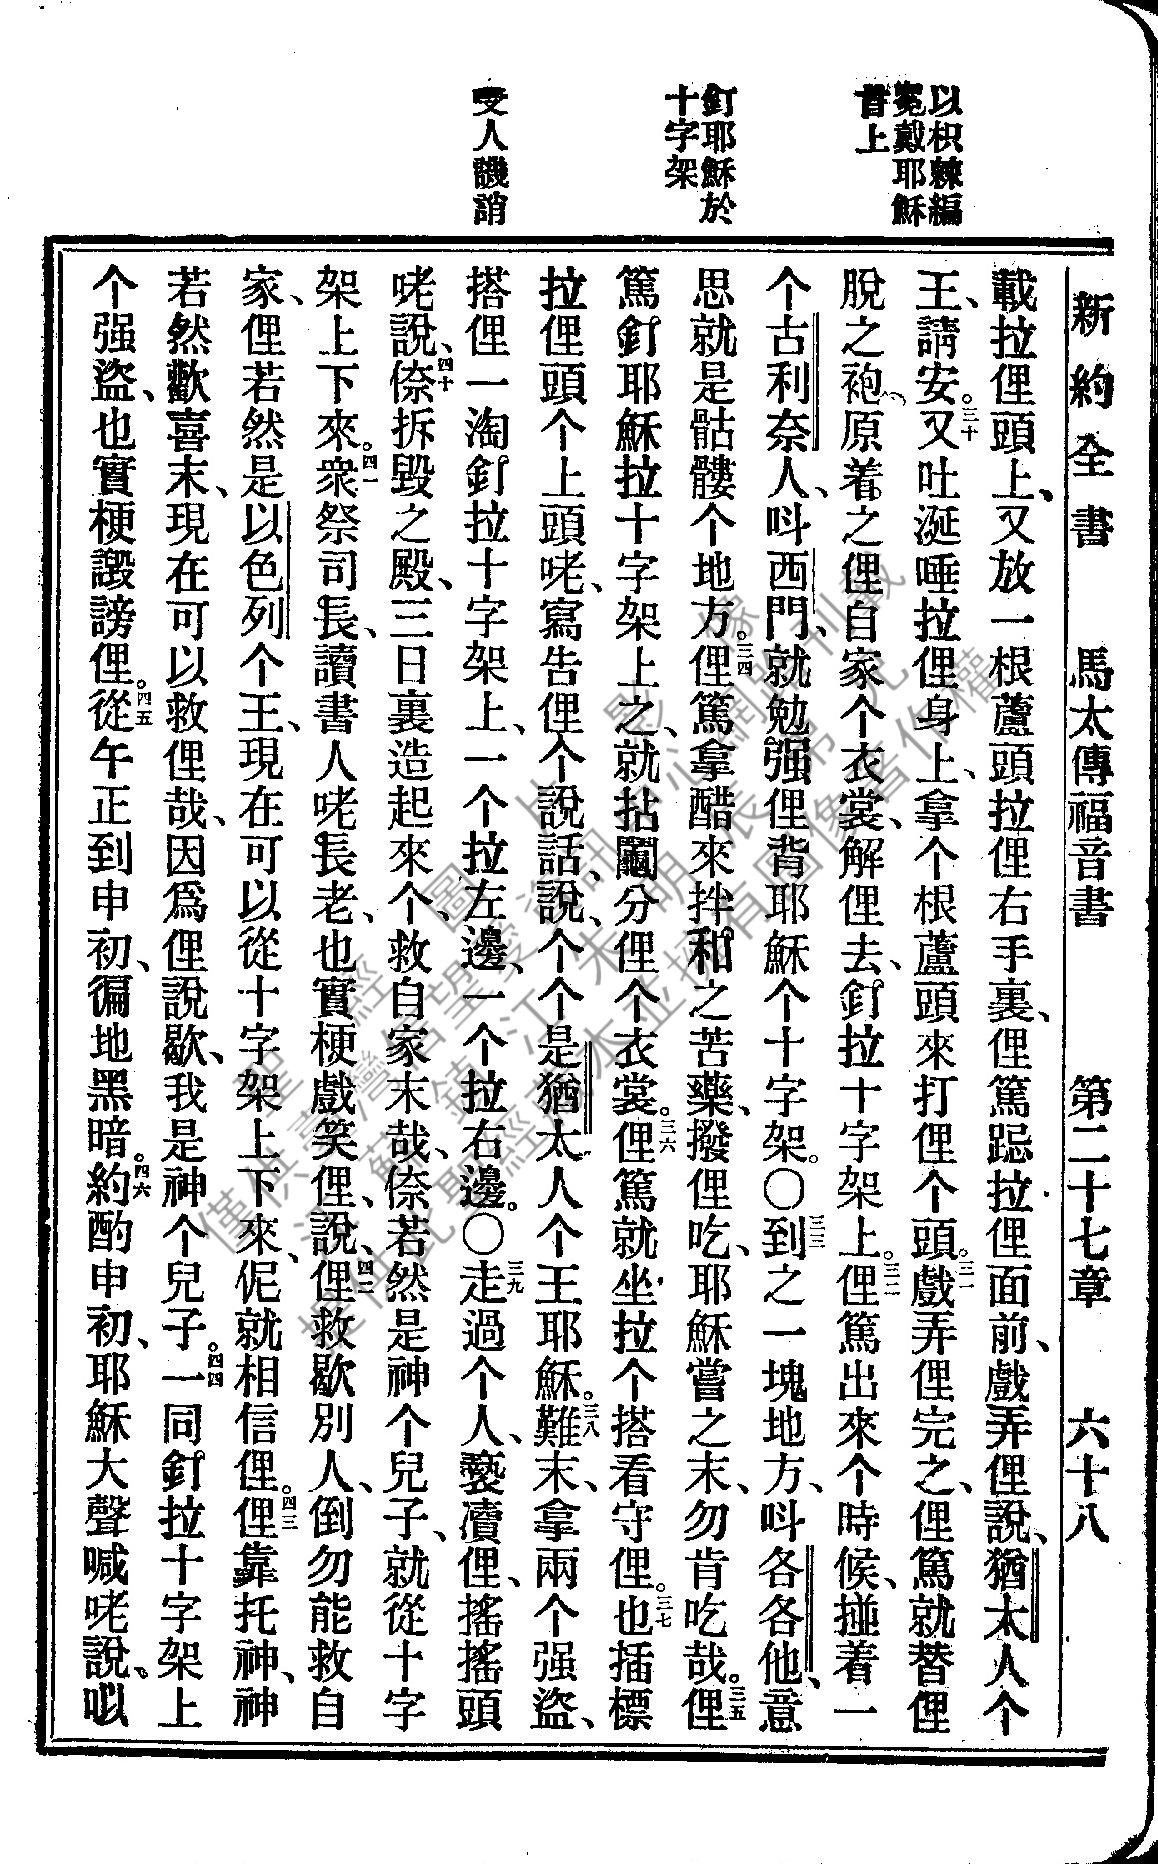 以枳棘編
冕戴耶穌
首上
釘耶穌於
十字架
受人譏誚
新約全書 馬太傳福音書 第二十七章 六十八
載拉俚頭上、又放一根蘆頭拉俚右手裏、俚篤跽拉俚面前、戲弄俚說、猶太人个
王、請安。三十又吐涎唾拉俚身上、拿个根蘆頭來打俚个頭。三一戲弄俚完之、俚篤就替俚
脫之袍、原着之俚自家个衣裳、解俚去、釘拉十字架上。三二俚篤出來个時候、掽着一
个古利奈人、呌西門、就勉强俚背耶穌个十字架。〇三三到之一塊地方、呌各各他、意
思就是骷髏个地方。三四俚篤拿醋來拌和之苦藥、撥俚吃、耶穌嘗之末、勿肯吃哉。三五俚
篤釘耶穌拉十字架上之、就拈鬮分俚个衣裳。三六俚篤就坐拉个搭看守俚。三七也插標
拉俚頭个上頭咾、寫告俚个說話、說、个个是猶太人个王耶穌。三八難末、拿兩个强盜、
搭俚一淘釘拉十字架上、一个拉左邊、一个拉右邊。〇三九走過个人、褻瀆俚、搖搖頭
咾說、四十倷拆毀之殿、三日裏造起來个、救自家末哉、倷若然是神个兒子、就從十字
架上下來。四一衆祭司長、讀書人咾長老、也實梗戲笑俚、說、四二俚救歇別人、倒勿能救自
家、俚若然是以色列个王、現在可以從十字架上下來、伲就相信俚。四三俚靠托神、神
若然歡喜末、現在可以救俚哉、因爲俚說歇、我是神个兒子。四四一同釘拉十字架上
个强盜、也實梗譭謗俚。四五從午正到申初、徧地黑暗。四六約酌申初、耶穌大聲喊咾說、㕥
聖經圖片影像